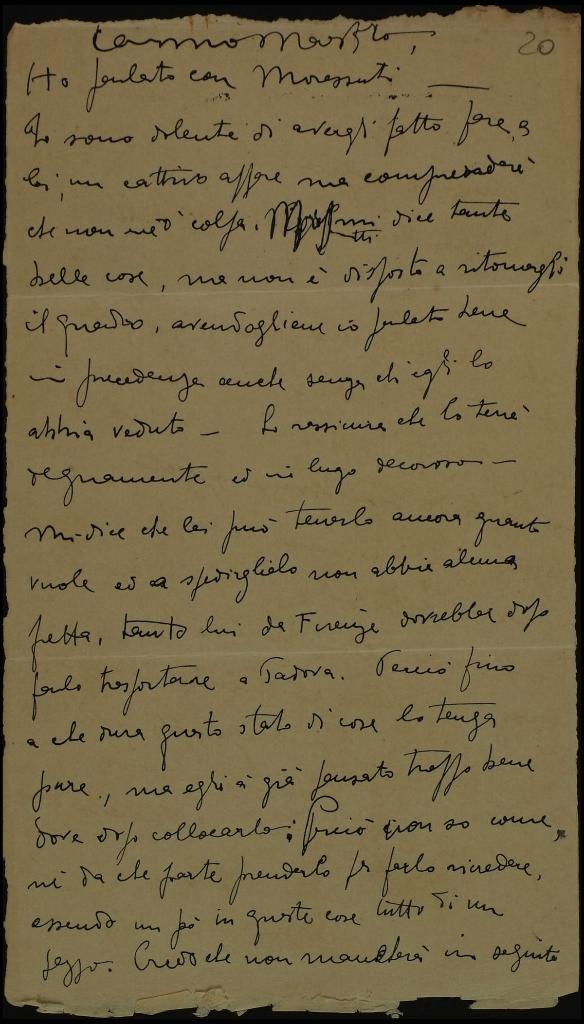 20
Carissimo Maestro,
Ho parlato con Morassutti —
Io sono dolente di avergli fatto fare, a
lei, un cattivo affare ma comprenderà
che non ne ò colpa. dice tante
belle cose, ma non è disposto a ritornargli
il quadro, avendogliene io parlato bene
in precedenza anche senza ch'egli lo
abbia veduto — Lo rassicura che lo terrà
degnamente ed in luogo decoroso —
Mi dice che lei può tenerlo ancora quanto
vuole ed a spedirglielo non abbia alcuna
fretta, tanto lui da Firenze dovrebbe dopo
farlo trasportare a Padova. Perciò fino
a che dura questo stato di cose lo tenga
pure, ma egli à già pensato troppo bene
dove dopo collocarlo; perciò non so come,
nè da che parte prenderlo per farlo ricredere,
essendo un pò in queste cose tutto di un
pezzo. Credo che non mancherà in seguito